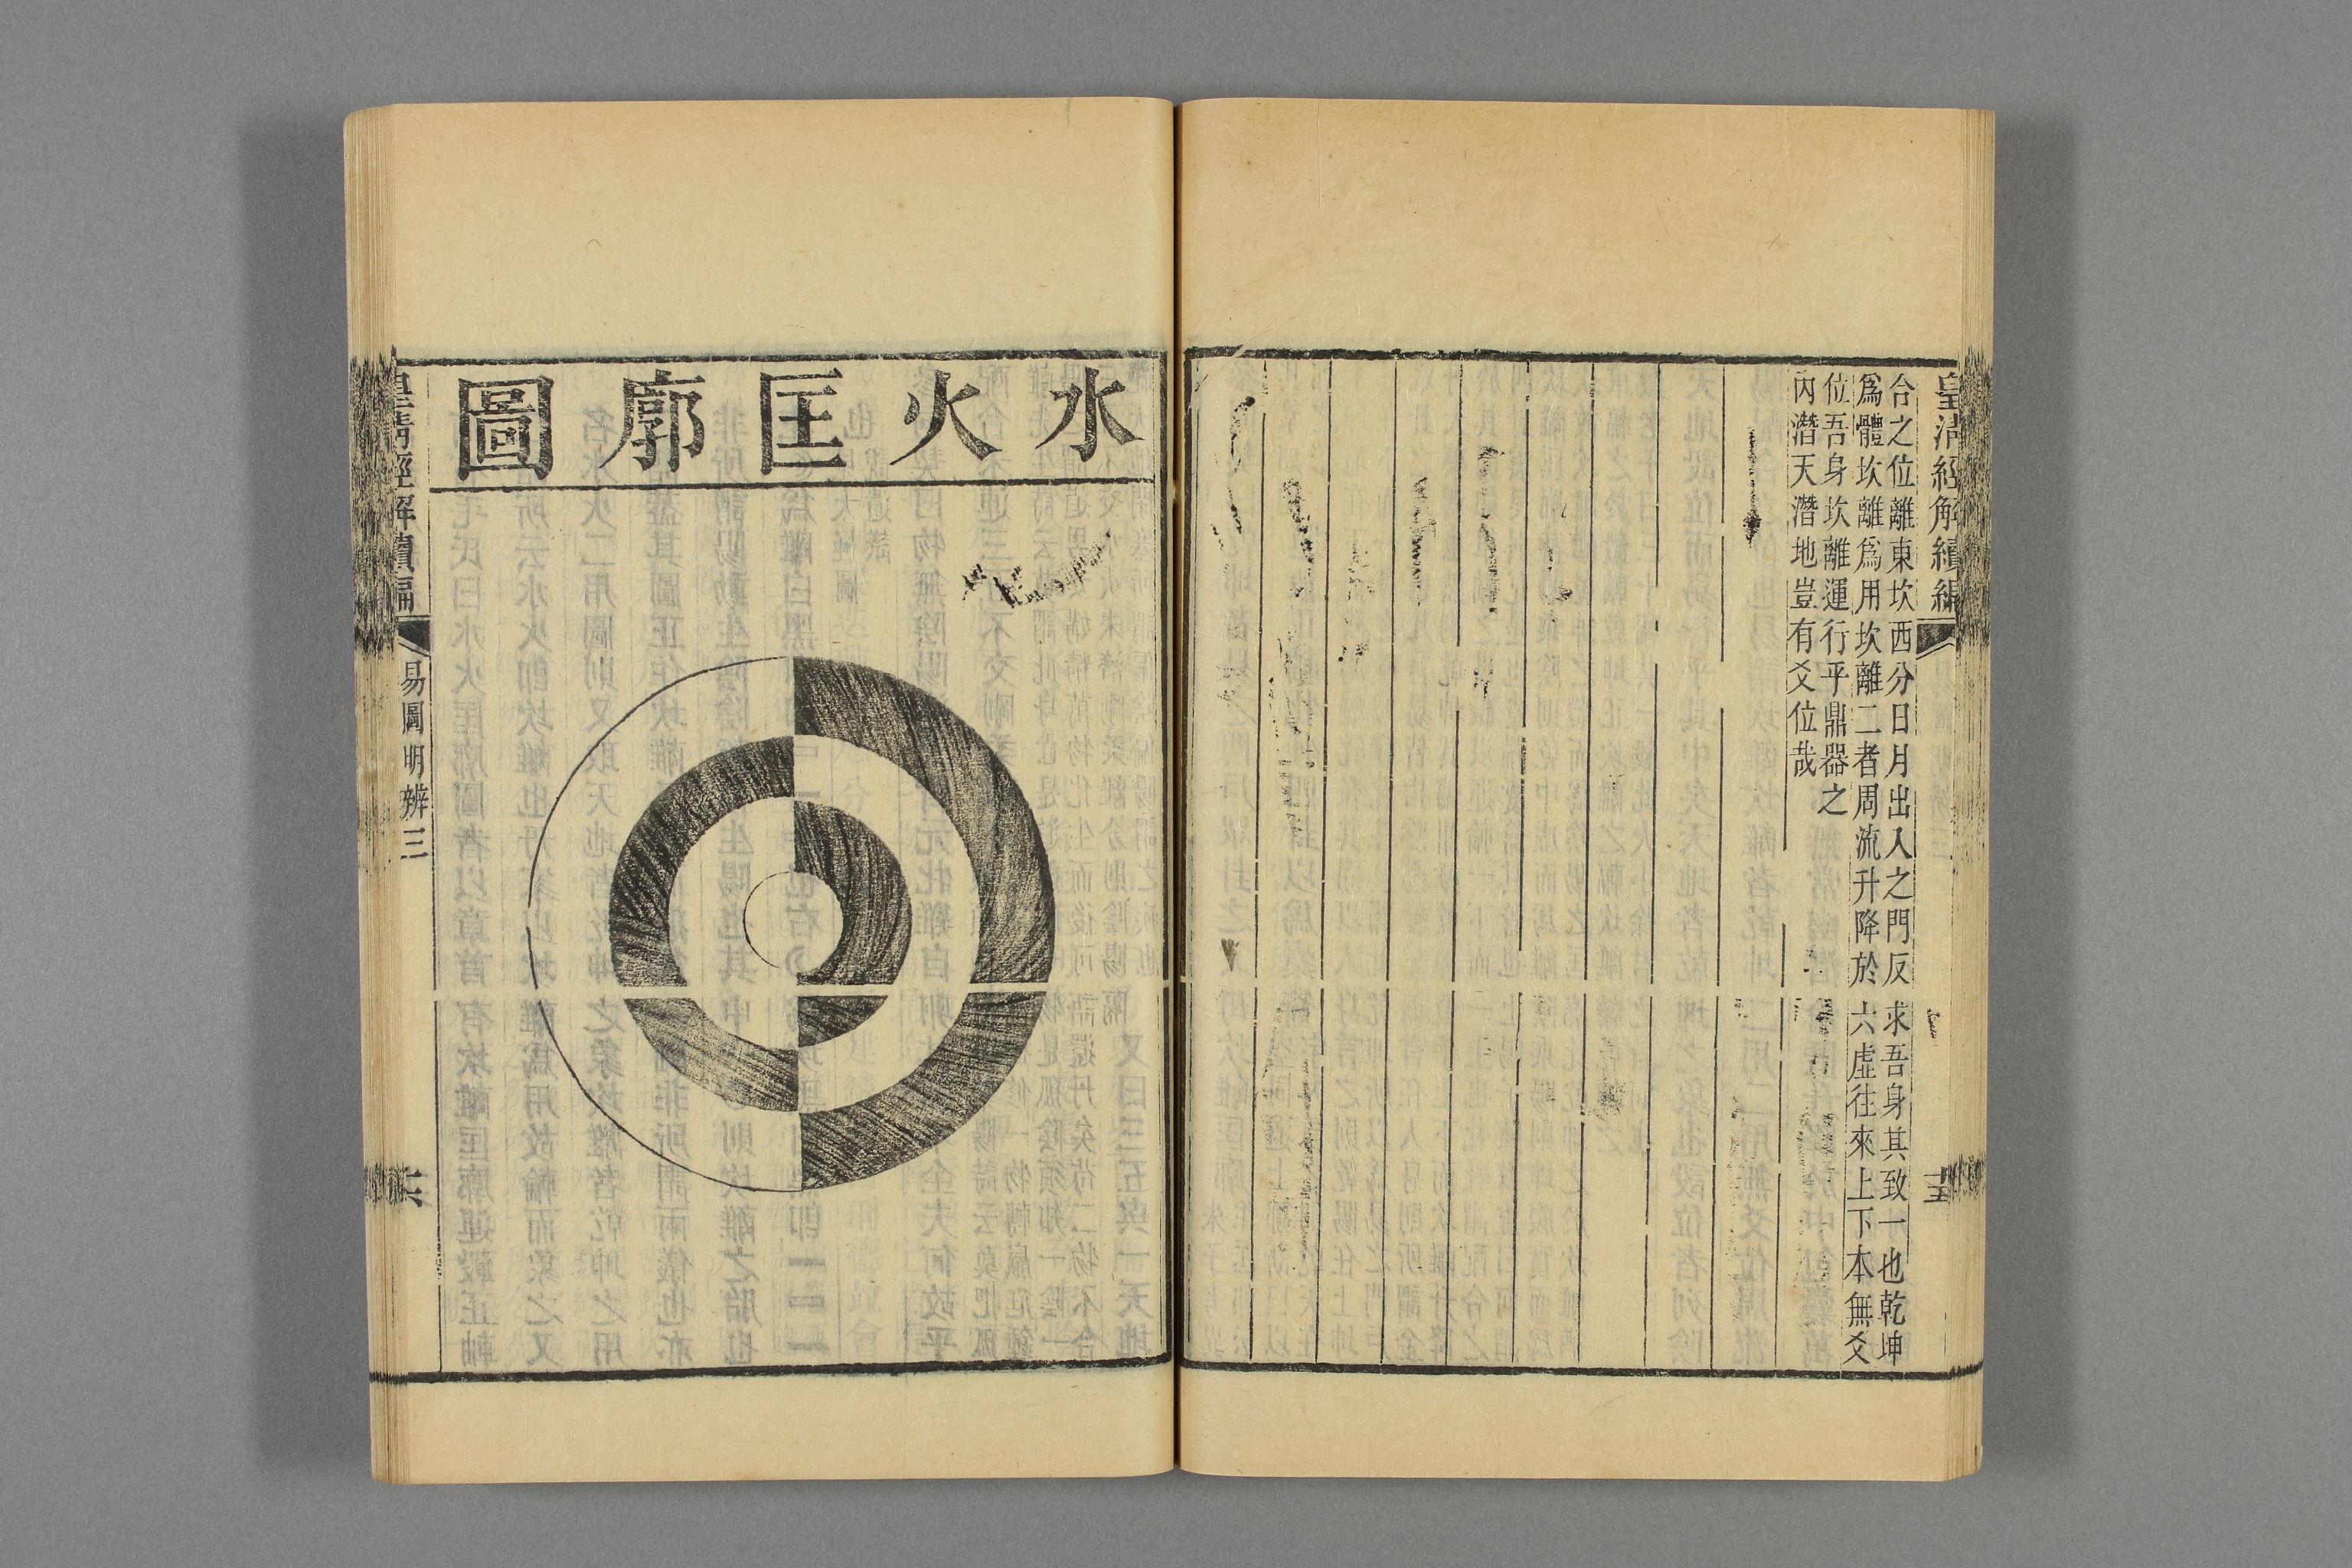 皇清經解續編
合之位離東坎西分日月出入之門反求吾身其致一也乾坤
爲體坎離爲用坎離二者周流升降於六虛往來上下本無爻
位吾身坎離運行乎鼎器之
內潛天潛地豈有爻位哉
十五
水火匡廓圖
皇清經解續編
易圖明辨三
十六